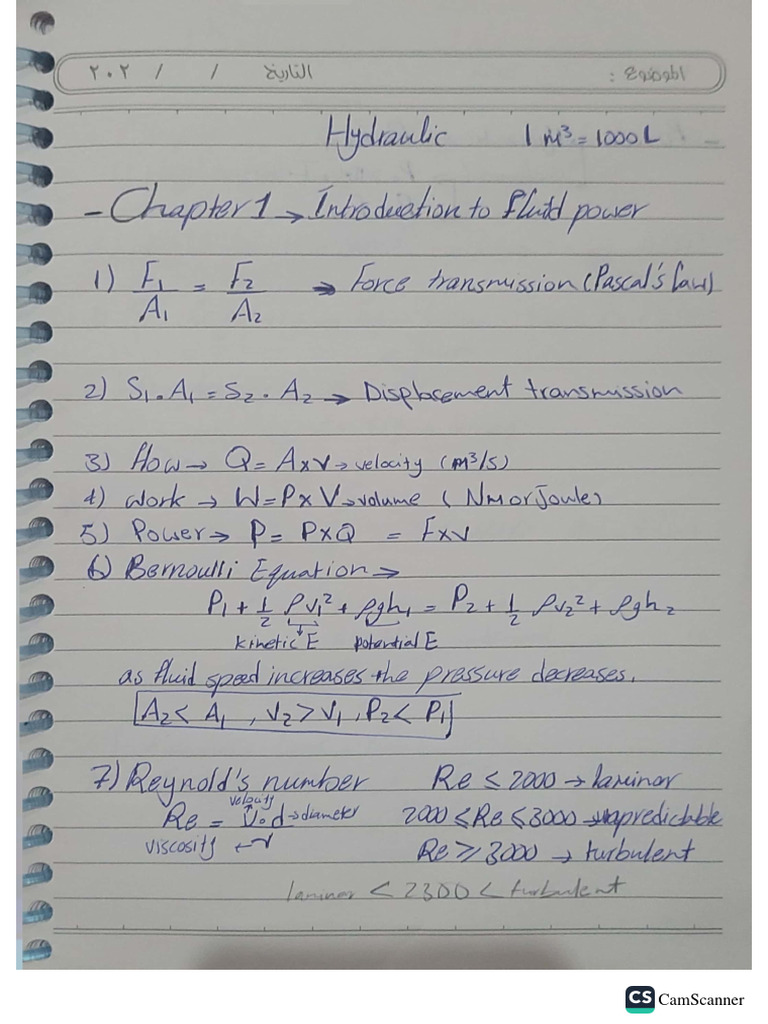 الموضوع :
التاريخ / / ٢٠٢
Hydraulic 1 m³ = 1000 L
- Chapter 1 → Introduction to fluid power
1) F₁/A₁ = F₂/A₂ → Force transmission (Pascal's law)
2) S₁ . A₁ = S₂ . A₂ → Displacement transmission
3) flow → Q = A x v → velocity (m³/s)
4) work → W = P x V → volume ( Nm or Joule)
5) Power → P = P x Q = F x v
6) Bernoulli Equation →
P₁ + 1/2 ρv₁² + ρgh₁ = P₂ + 1/2 ρv₂² + ρgh₂
kinetic E potential E
as fluid speed increases the pressure decreases.
A₂ < A₁ , V₂ > V₁ , P₂ < P₁
7) Reynold's number Re ≤ 2000 → laminar
velocity
Re = v . d → diameter 2000 ≤ Re ≤ 3000 → unpredictable
viscosity ← ν Re ≥ 3000 → turbulent
laminar < 2300 < turbulent
CS CamScanner